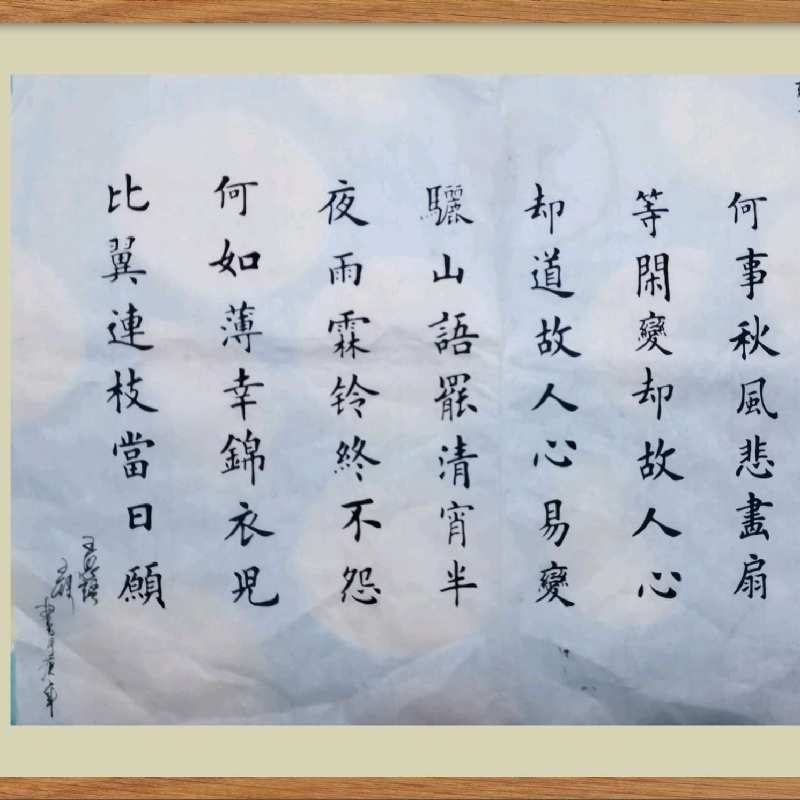 何事秋風悲畫扇
等閑變却故人心
却道故人心易變
驪山語罷清宵半
夜雨霖铃終不怨
何如薄幸錦衣児
比翼連枝當日願